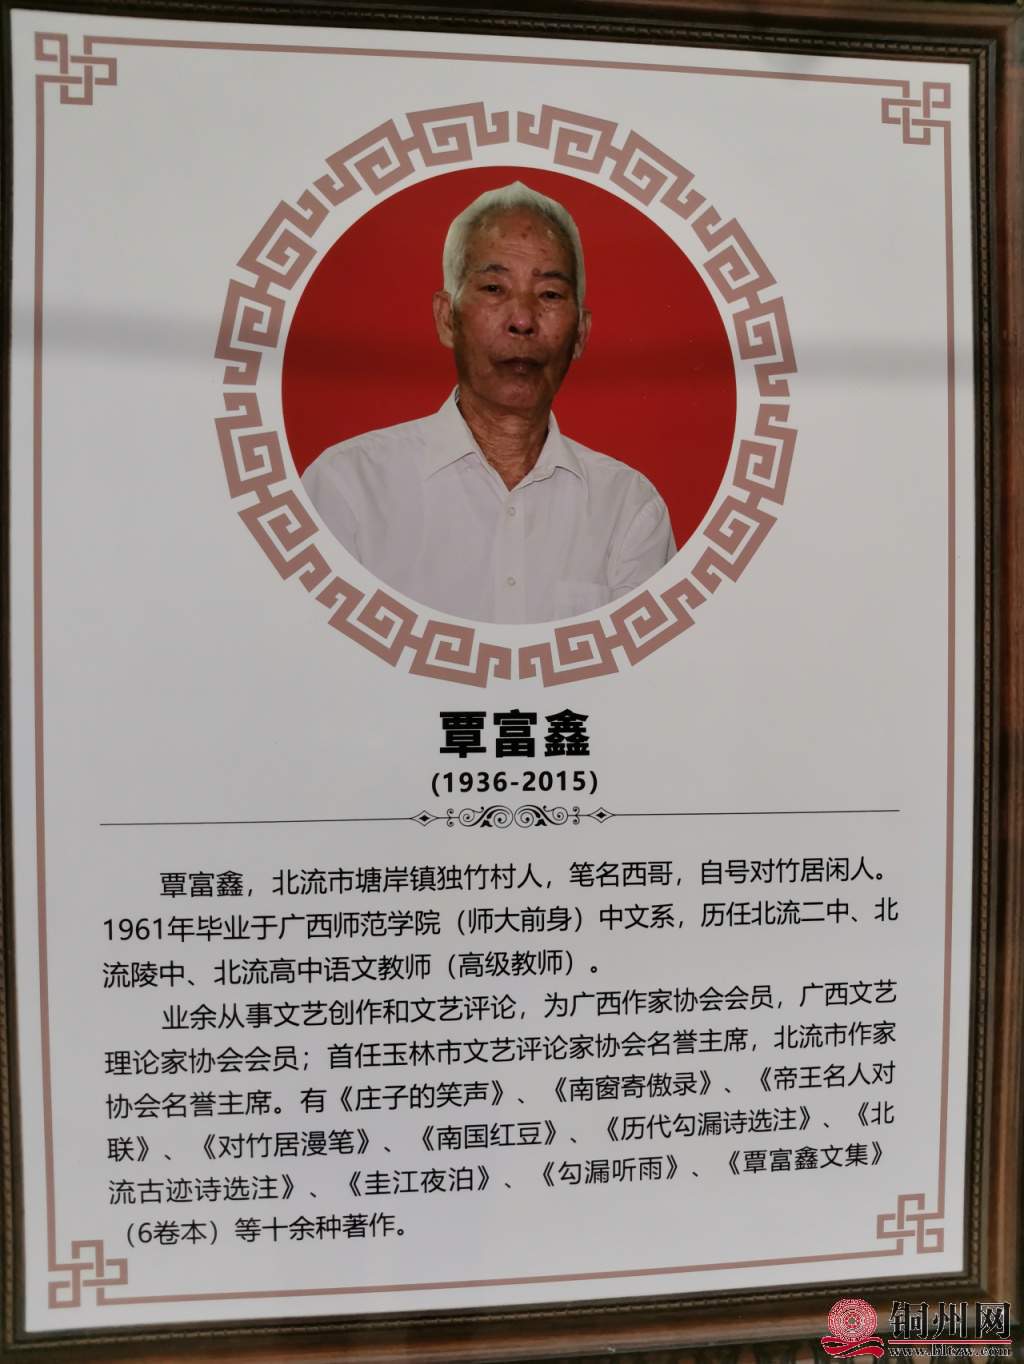 覃富鑫
(1936-2015)
覃富鑫，北流市塘岸镇独竹村人，笔名西哥，自号对竹居闲人。
1961年毕业于广西师范学院（师大前身）中文系，历任北流二中、北
流陵中、北流高中语文教师（高级教师）。
业余从事文艺创作和文艺评论，为广西作家协会会员，广西文艺
理论家协会会员；首任玉林市文艺评论家协会名誉主席，北流市作家
协会名誉主席。有《庄子的笑声》、《南窗寄傲录》、《帝王名人对
联》、《对竹居漫笔》、《南国红豆》、《历代勾漏诗选注》、《北
流古迹诗选注》、《圭江夜泊》、《勾漏听雨》、《覃富鑫文集》
（6卷本）等十余种著作。
铜州网
www.bltzw.com